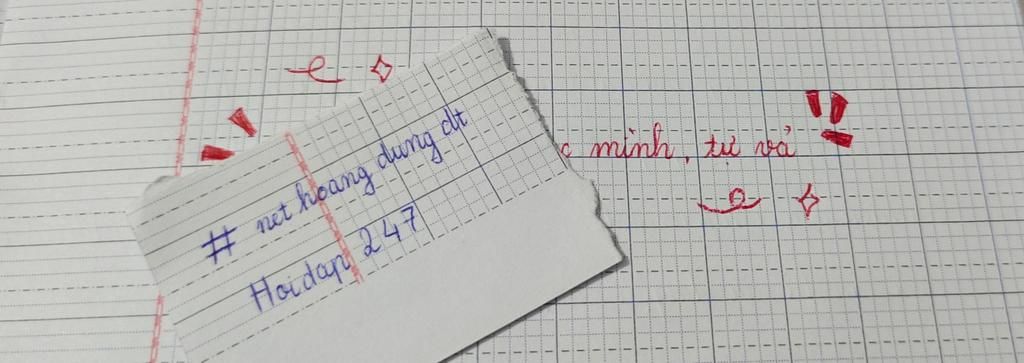 minh, tự vả
# net hoang dung dt
Hoidap 247